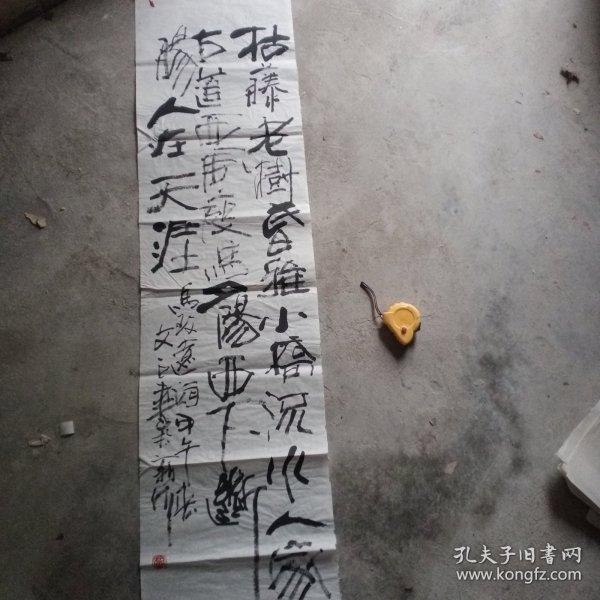 枯藤老樹昏雅小橋流水人家
古道西風瘦馬夕陽西下斷
腸人在天涯
馬致遠詞甲午春
文
孔夫子旧書网
www.kongfz.com